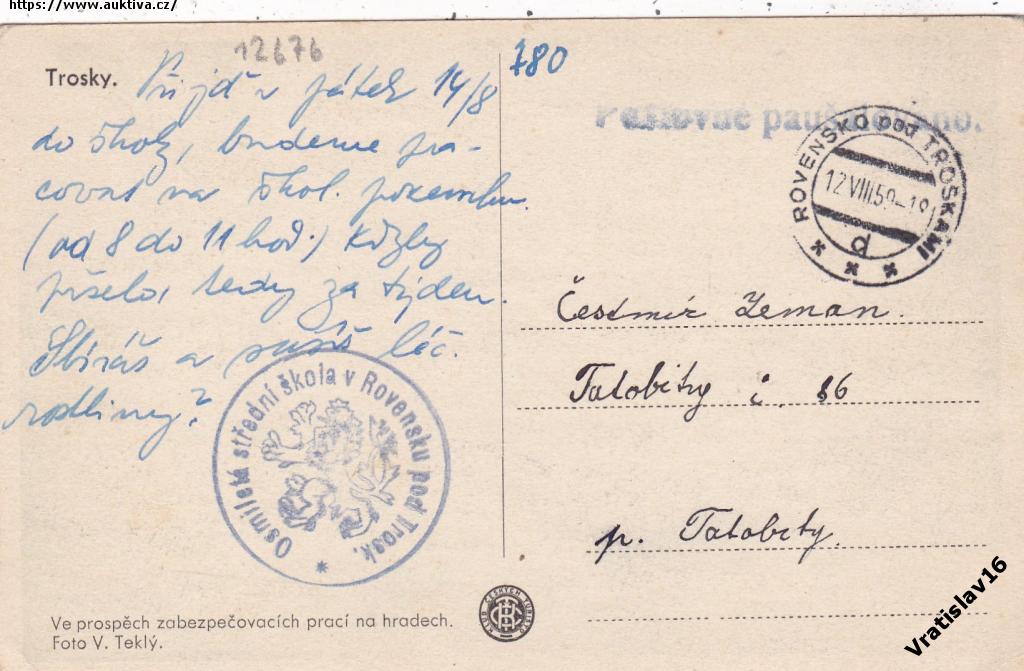 https://www.auktiva.cz/
12676
Trosky.
780
Přijď v pátek 14/8
do školy, budeme pra-
covat na škol. pozemku.
(od 8 do 11 hod.) Kdyby
pršelo, tedy za týden.
Sbíráš a sušíš léč.
rostliny?
Poštovné paušalováno.
ROVENSKO pod TROSKAMI
12.VIII.59-18
d
Čestmír Zeman.
Tatobity č. 86
p. Tatobity.
Osmiletá střední škola v Rovensku pod Trosk.
Ve prospěch zabezpečovacích prací na hradech.
Foto V. Teklý.
KLUB ČESKÝCH TURISTŮ
Vratislav16